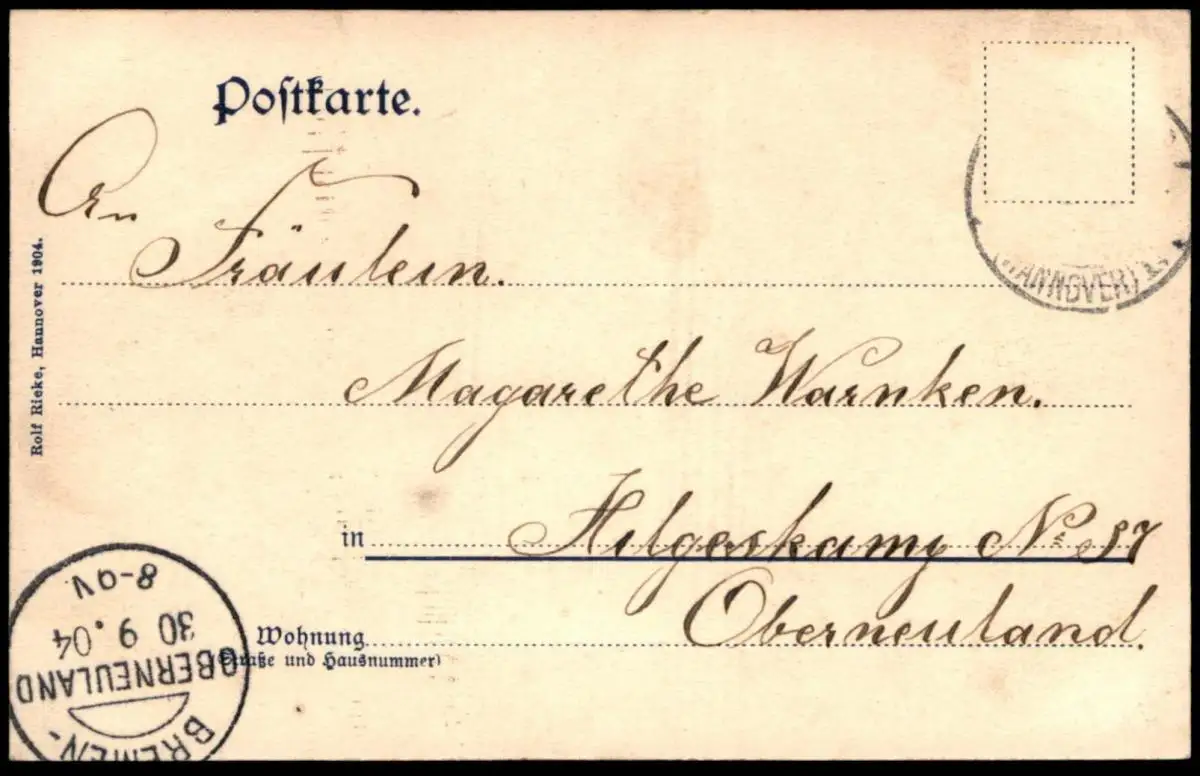 Postkarte.
An
Fräulein.
Magarethe Warnken.
in Hilgeskamp No. 87
Oberneuland.
Wohnung
(Straße und Hausnummer)
Rolf Rieke, Hannover 1904.
(HANNOVER)
BREMEN-
OBERNEULAND
30 9.04
8-9V